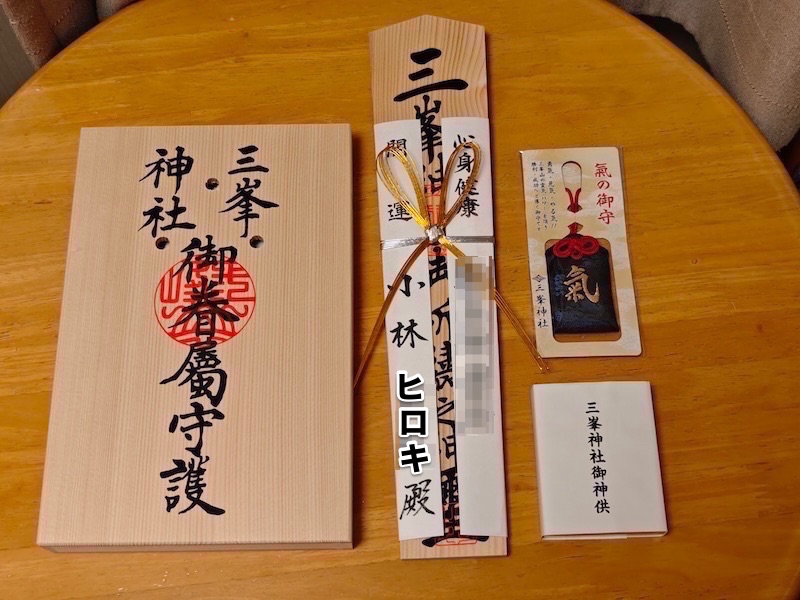 三峯
神社
御眷屬守護
三峯
心身健康
開運
小林
ヒロキ
殿
氣の御守
氣
三峯神社
三峯神社御神供